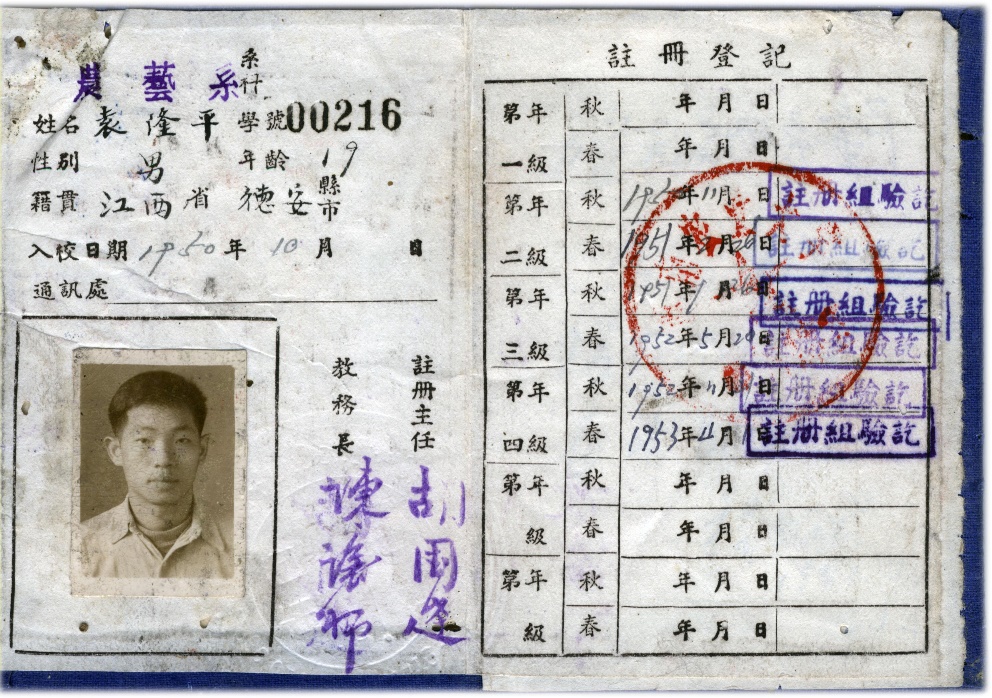 農藝系 系科
姓名 袁隆平 學號 00216
性别 男 年龄 19
籍貫 江西省 德安 縣市
入校日期 1950年 10月 日
通訊處
教務長
註册主任
註冊登記
第一年級 秋 年 月 日
春 年 月 日
第二年級 秋 年11月 日 註册組驗訖
春 1951年 月 日 註册組驗訖
第三年級 秋 1951年 月 日 註册組驗訖
春 1952年5月 日 註册組驗訖
第四年級 秋 1952年11月 日 註册組驗訖
春 1953年4月 日 註册組驗訖
第年級 秋 年 月 日
春 年 月 日
第年級 秋 年 月 日
春 年 月 日